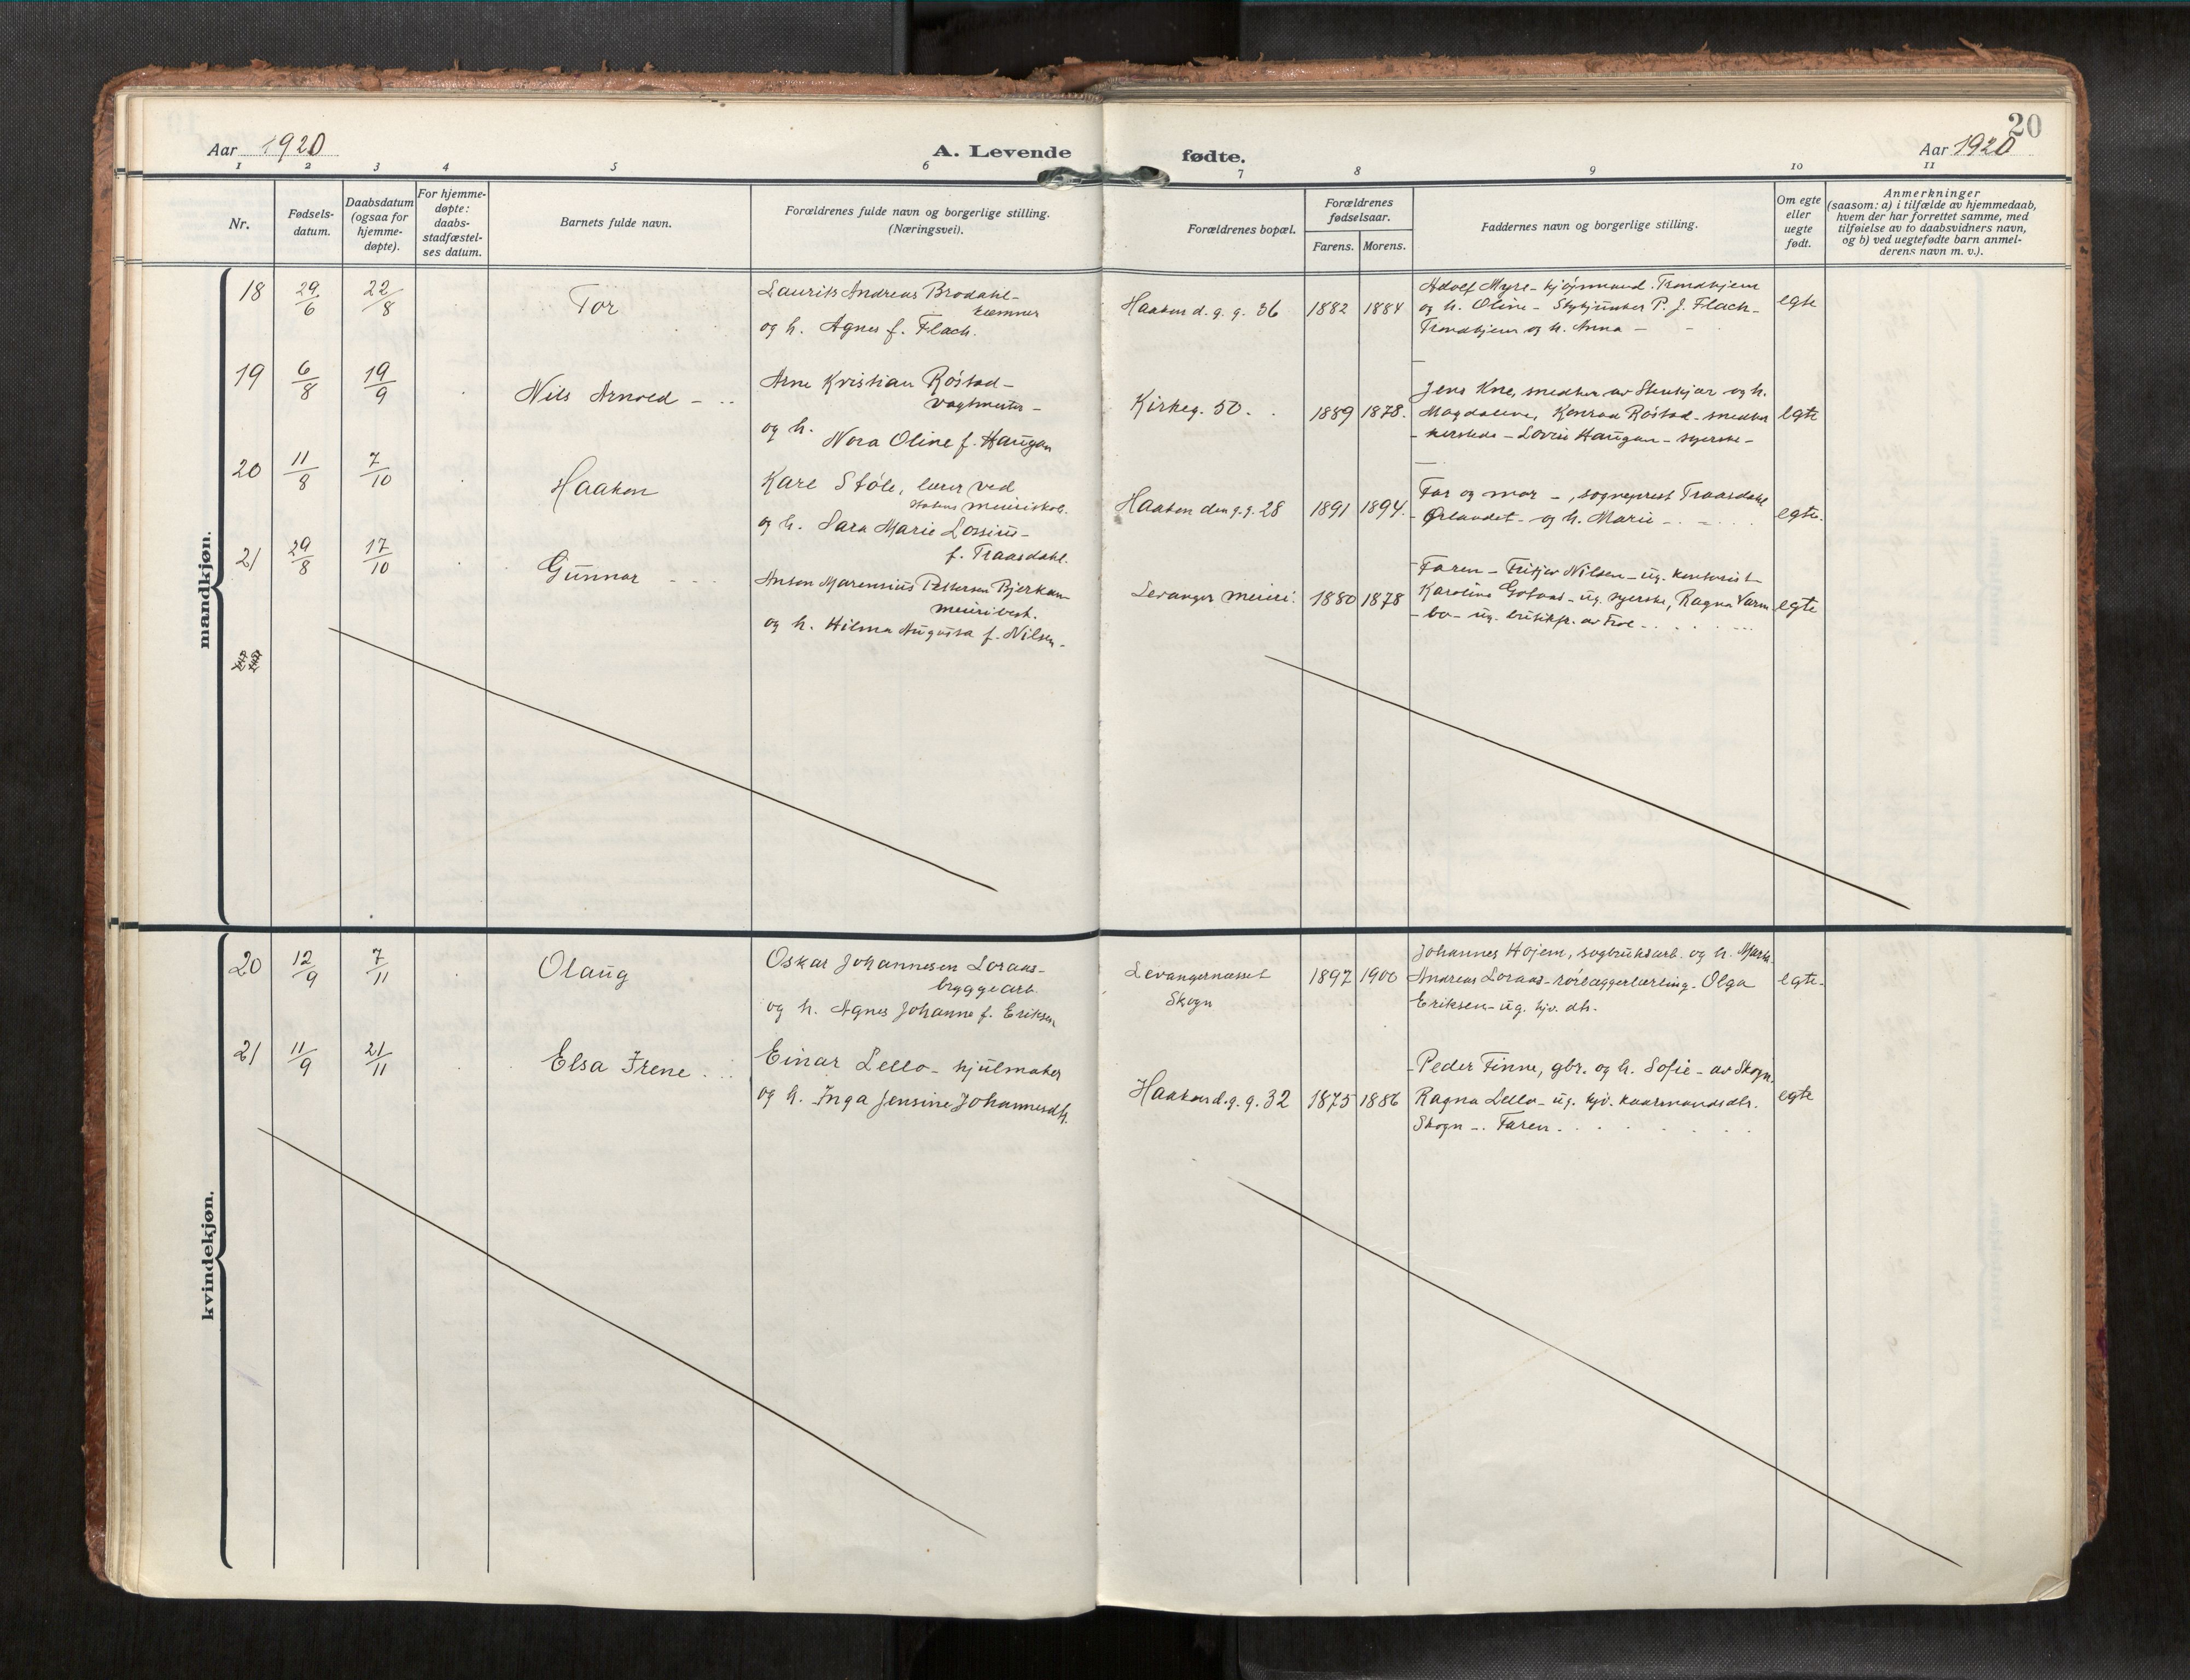 20
Aar 1920
A. Levende
fødte.
Aar 1920
1 2 3 4 5 6 7 8 9 10 11
Nr.
Fødsels-
datum.
Daabsdatum
(ogsaa for
hjemme-
døpte).
For hjemme-
døpte:
daabs-
stadfæstel-
ses datum.
Barnets fulde navn.
Forældrenes fulde navn og borgerlige stilling.
(Næringsvei).
Forældrenes bopæl.
Forældrenes
fødselsaar.
Farens. Morens.
Faddernes navn og borgerlige stilling.
Om egte
eller
uegte
født.
Anmerkninger
(saasom: a) i tilfælde av hjemmedaab,
hvem der har forrettet samme, med
tilføielse av to daabsvidners navn,
og b) ved uegtefødte barn anmel-
derens navn m. v.).
mandkjøn.
18 29/6 22/8 Tor
Laurits Andreas Brodahl-
kæmner
og h. Agnes f. Flach.
Haakon d. g. g. 36 1882 1884
Adolf Myre - kjøpmand. Trondhjem
og h. Oline - P. J. Flach -
Trondhjem og h. Anna -
egte
19 6/8 19/9 Nils Arnold -
Arne Kristian Røstad -
vagtmester -
og h. Nora Oline f. Haugan
Kirkeg. 50. 1889 1878.
Jens Kne, snedker av Stenkjær og h.
Magdalene, Konrad Røstad - snedker
- hersteds - Lovise Haugan - syerske -
egte
20 11/8 7/10 Haakon
Karl Støle, lærer ved
Statens meieriskole.
og h. Sara Marie Lossius -
f. Traasdahl.
Haakon den g. g. 28 1891 1894.
Far og mor -, sogneprest Traasdahl
- Ørlandet - og h. Marie -
egte.
21 29/8 17/10 Gunnar
Anton Marensius Pettersen Bjerkan -
meieribest.
og h. Hilma Augusta f. Nilsen -
Levanger meieri. 1880 1878
- Faren - Fritjov Nilsen - ug. kontorist -
Karoline Gotaas - ug. syerske, Ragna Varm
- bo - ug. butikfr. av Frol -
egte
kvindekjøn.
20 12/9 7/11 Olaug
Oskar Johannesen Loraas -
bryggearb.
og h. Agnes Johanne f. Eriksen
Levangernesset
Skogn
1897 1900
Johannes Hojem, sagbruksarb. og h. Marta.
Andreas Loraas - rørlæggerlærling - Olga
Eriksen - ug. hjv. dtr.
egte.
21 11/9 21/11 Elsa Irene
Einar Lello - hjulmaker
og h. Inga Jensine Johannesdtr.
Haakon d. g. g. 32 1875 1886
- Peder Finne, gbr. og h. Sofie - av Skogn.
Ragna Lello - ug. hjv. kaarmandsdtr.
Skogn -. Faren.
egte